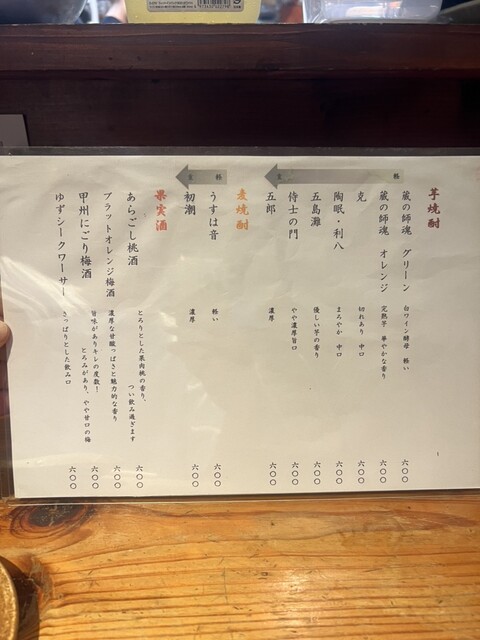 芋焼酎
軽
蔵の師魂 グリーン 白ワイン酵母 軽い 六〇〇
蔵の師魂 オレンジ 完熟芋 華やかな香り 六〇〇
克 切れあり 中口 六〇〇
陶眠・利八 まろやか 中口 六〇〇
五島灘 優しい芋の香り 六〇〇
侍士の門 やや濃厚旨口 六〇〇
五郎 濃厚 六〇〇
重
麦焼酎
軽
うすは音 軽い 六〇〇
初潮 濃厚 六〇〇
重
果実酒
あらごし桃酒 とろりとした果肉桃の香り、つい飲み過ぎます 六〇〇
ブラットオレンジ梅酒 濃厚な甘酸っぱさと魅力的な香り 六〇〇
甲州にごり梅酒 旨味がありキレの度数！とろみがあり、やや甘口の梅 六〇〇
ゆずシークワーサー さっぱりとした飲み口 六〇〇